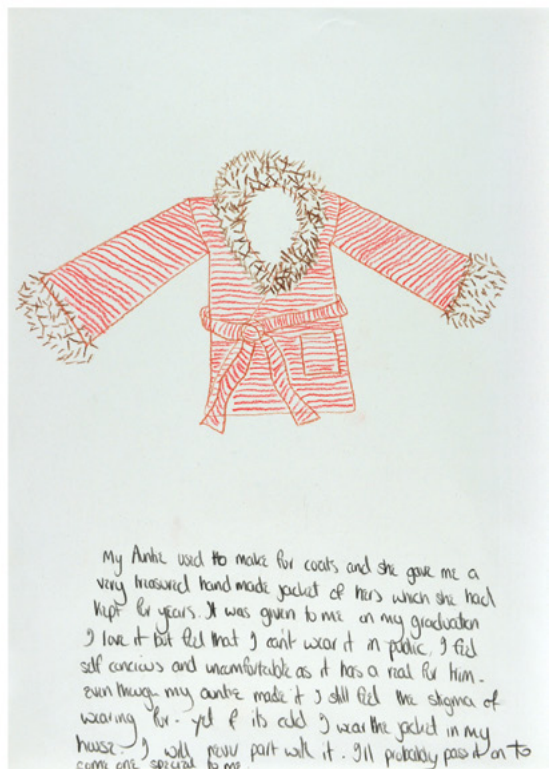 My Auntie used to make fur coats and she gave me a
very treasured hand made jacket of hers which she had
kept for years. It was given to me on my graduation
I love it but feel that I can't wear it in public. I feel
self concious and uncomfortable as it has a real fur trim.
even though my auntie made it I still feel the stigma of
wearing fur. yet if its cold I wear the jacket in my
house. I will never part with it. I'll probably pass it on to
some one special to me.